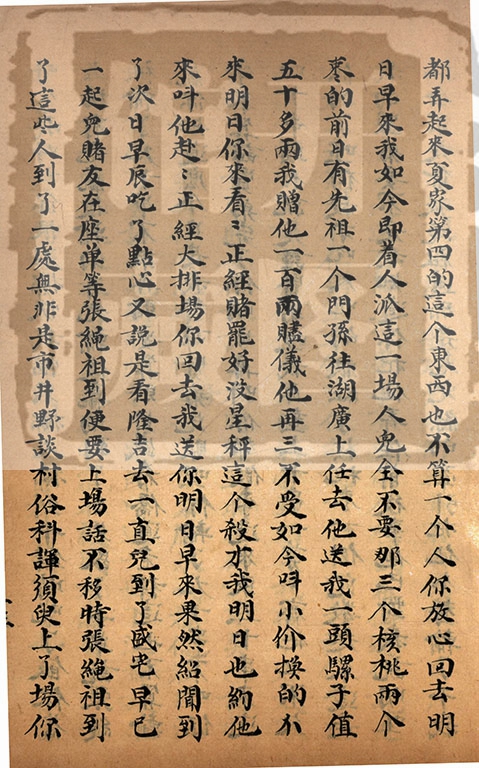 都弄起來夏家第四的這个東西也不算一个人你放心回去明
日早來我如今即着人派這一場人皃全不要那三个核桃兩个
枣的前日有先祖一个門孫往湖廣上任去他送我一頭騾子值
五十多兩我贈他一百兩贐儀他再三不受如今呌小价換的小
來明日你來看﹕正經賭罷好没星秤這个殺才我明日也約他
來呌他赴﹕正經大排場你回去我送你明日早來果然紹聞到
了次日早辰吃了點心又說是看隆吉去一直兒到了盛宅早已
一起皃賭友在座单等張繩祖到便要上場話不移時張繩祖到
了這些人到了一處無非是市井野談村俗科諢須臾上了場你